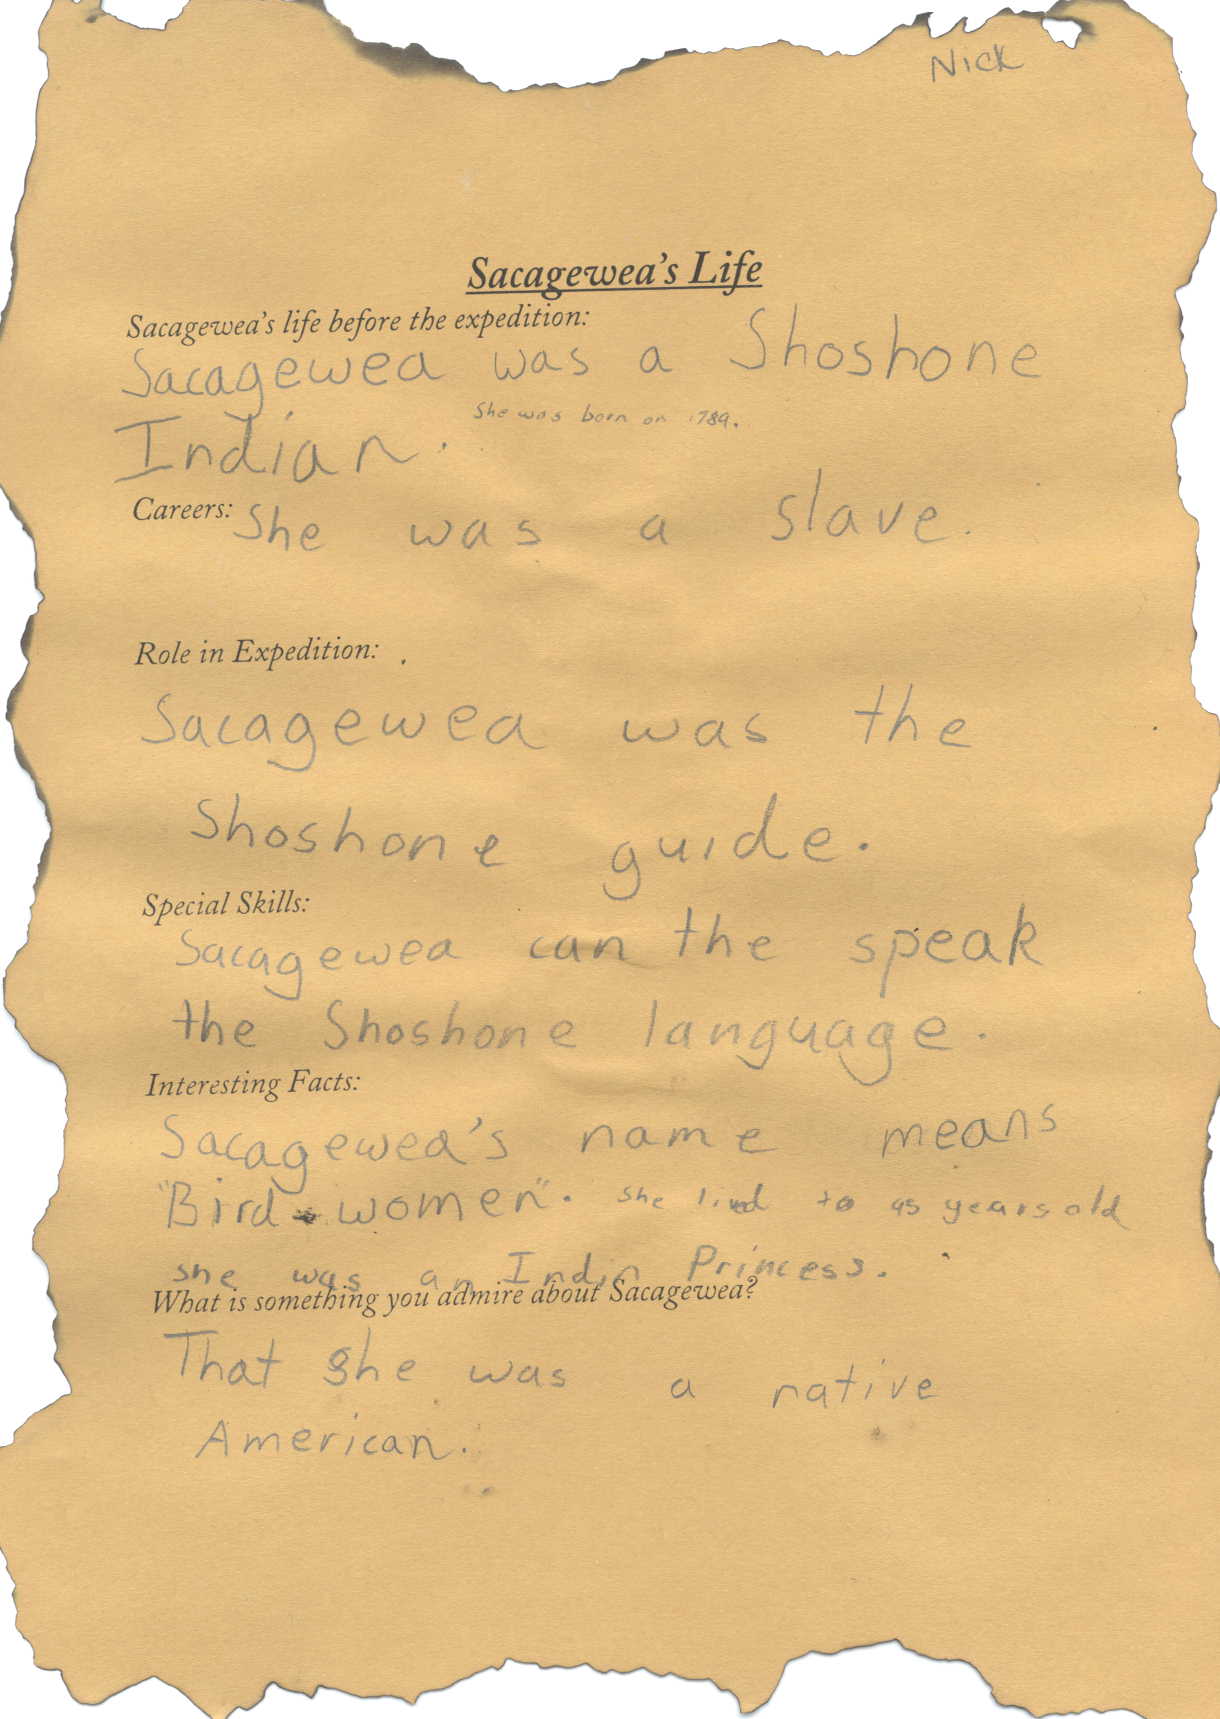 Nick
Sacagewea's Life
Sacagewea's life before the expedition:
Sacagewea was a Shoshone
She was born on 1789.
Indian.
Careers: She was a slave.
Role in Expedition:
Sacagewea was the
Shoshone guide.
Special Skills:
Sacagewea can the speak
the Shoshone language.
Interesting Facts:
Sacagewea's name means
"Bird women". She lived to 95 years old
she was an Indin Princess.
What is something you admire about Sacagewea?
That she was a native
American.